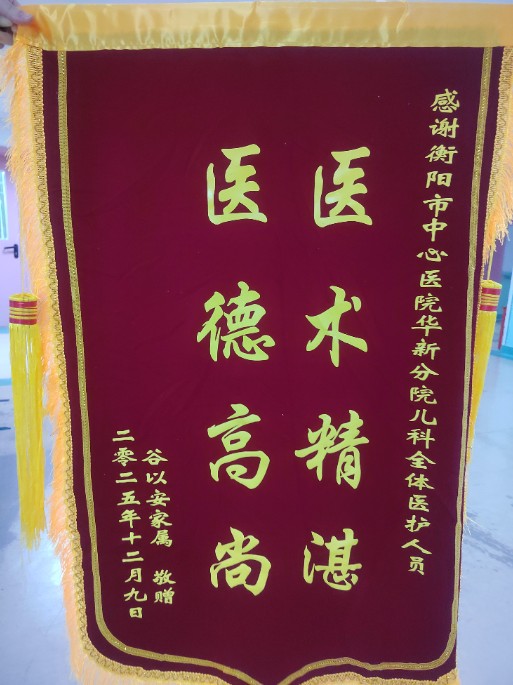 感谢衡阳市中心医院华新分院儿科全体医护人员
医术精湛
医德高尚
谷以安家属 敬赠
二零二五年十二月九日